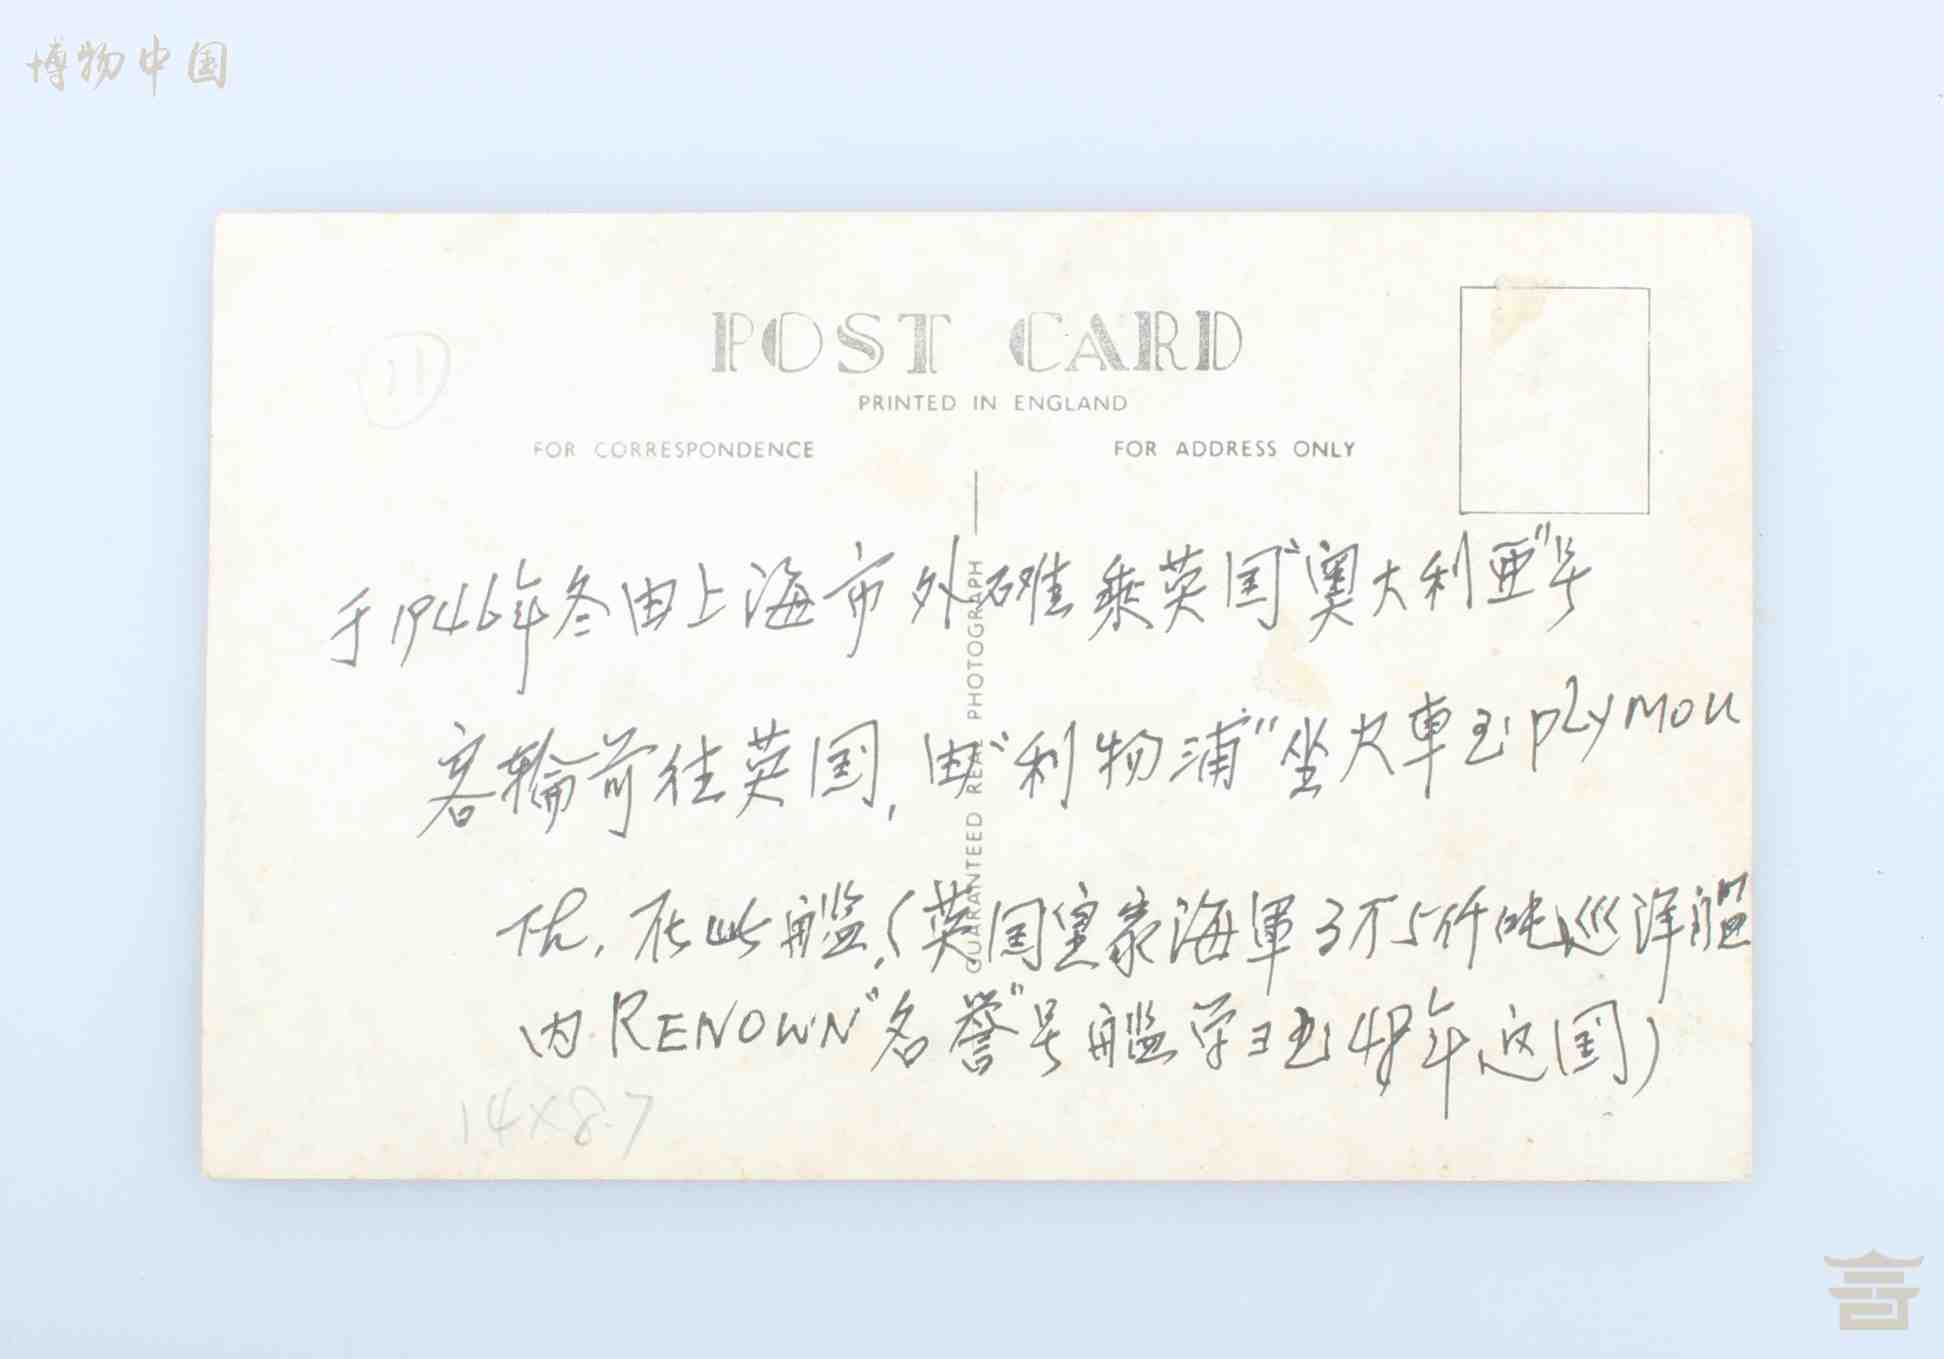 博物中国
11
POST CARD
PRINTED IN ENGLAND
FOR CORRESPONDENCE
FOR ADDRESS ONLY
GUARANTEED REAL PHOTOGRAPH
于1946年冬由上海市外滩乘英国"奥大利亚"号
客輪前往英国,由"利物浦"坐火車至PLYMOU
在此艦,(英国皇家海軍3万5仟吨巡洋艦
内RENOWN"名誉"号艦学习至48年返国)
14×8.7